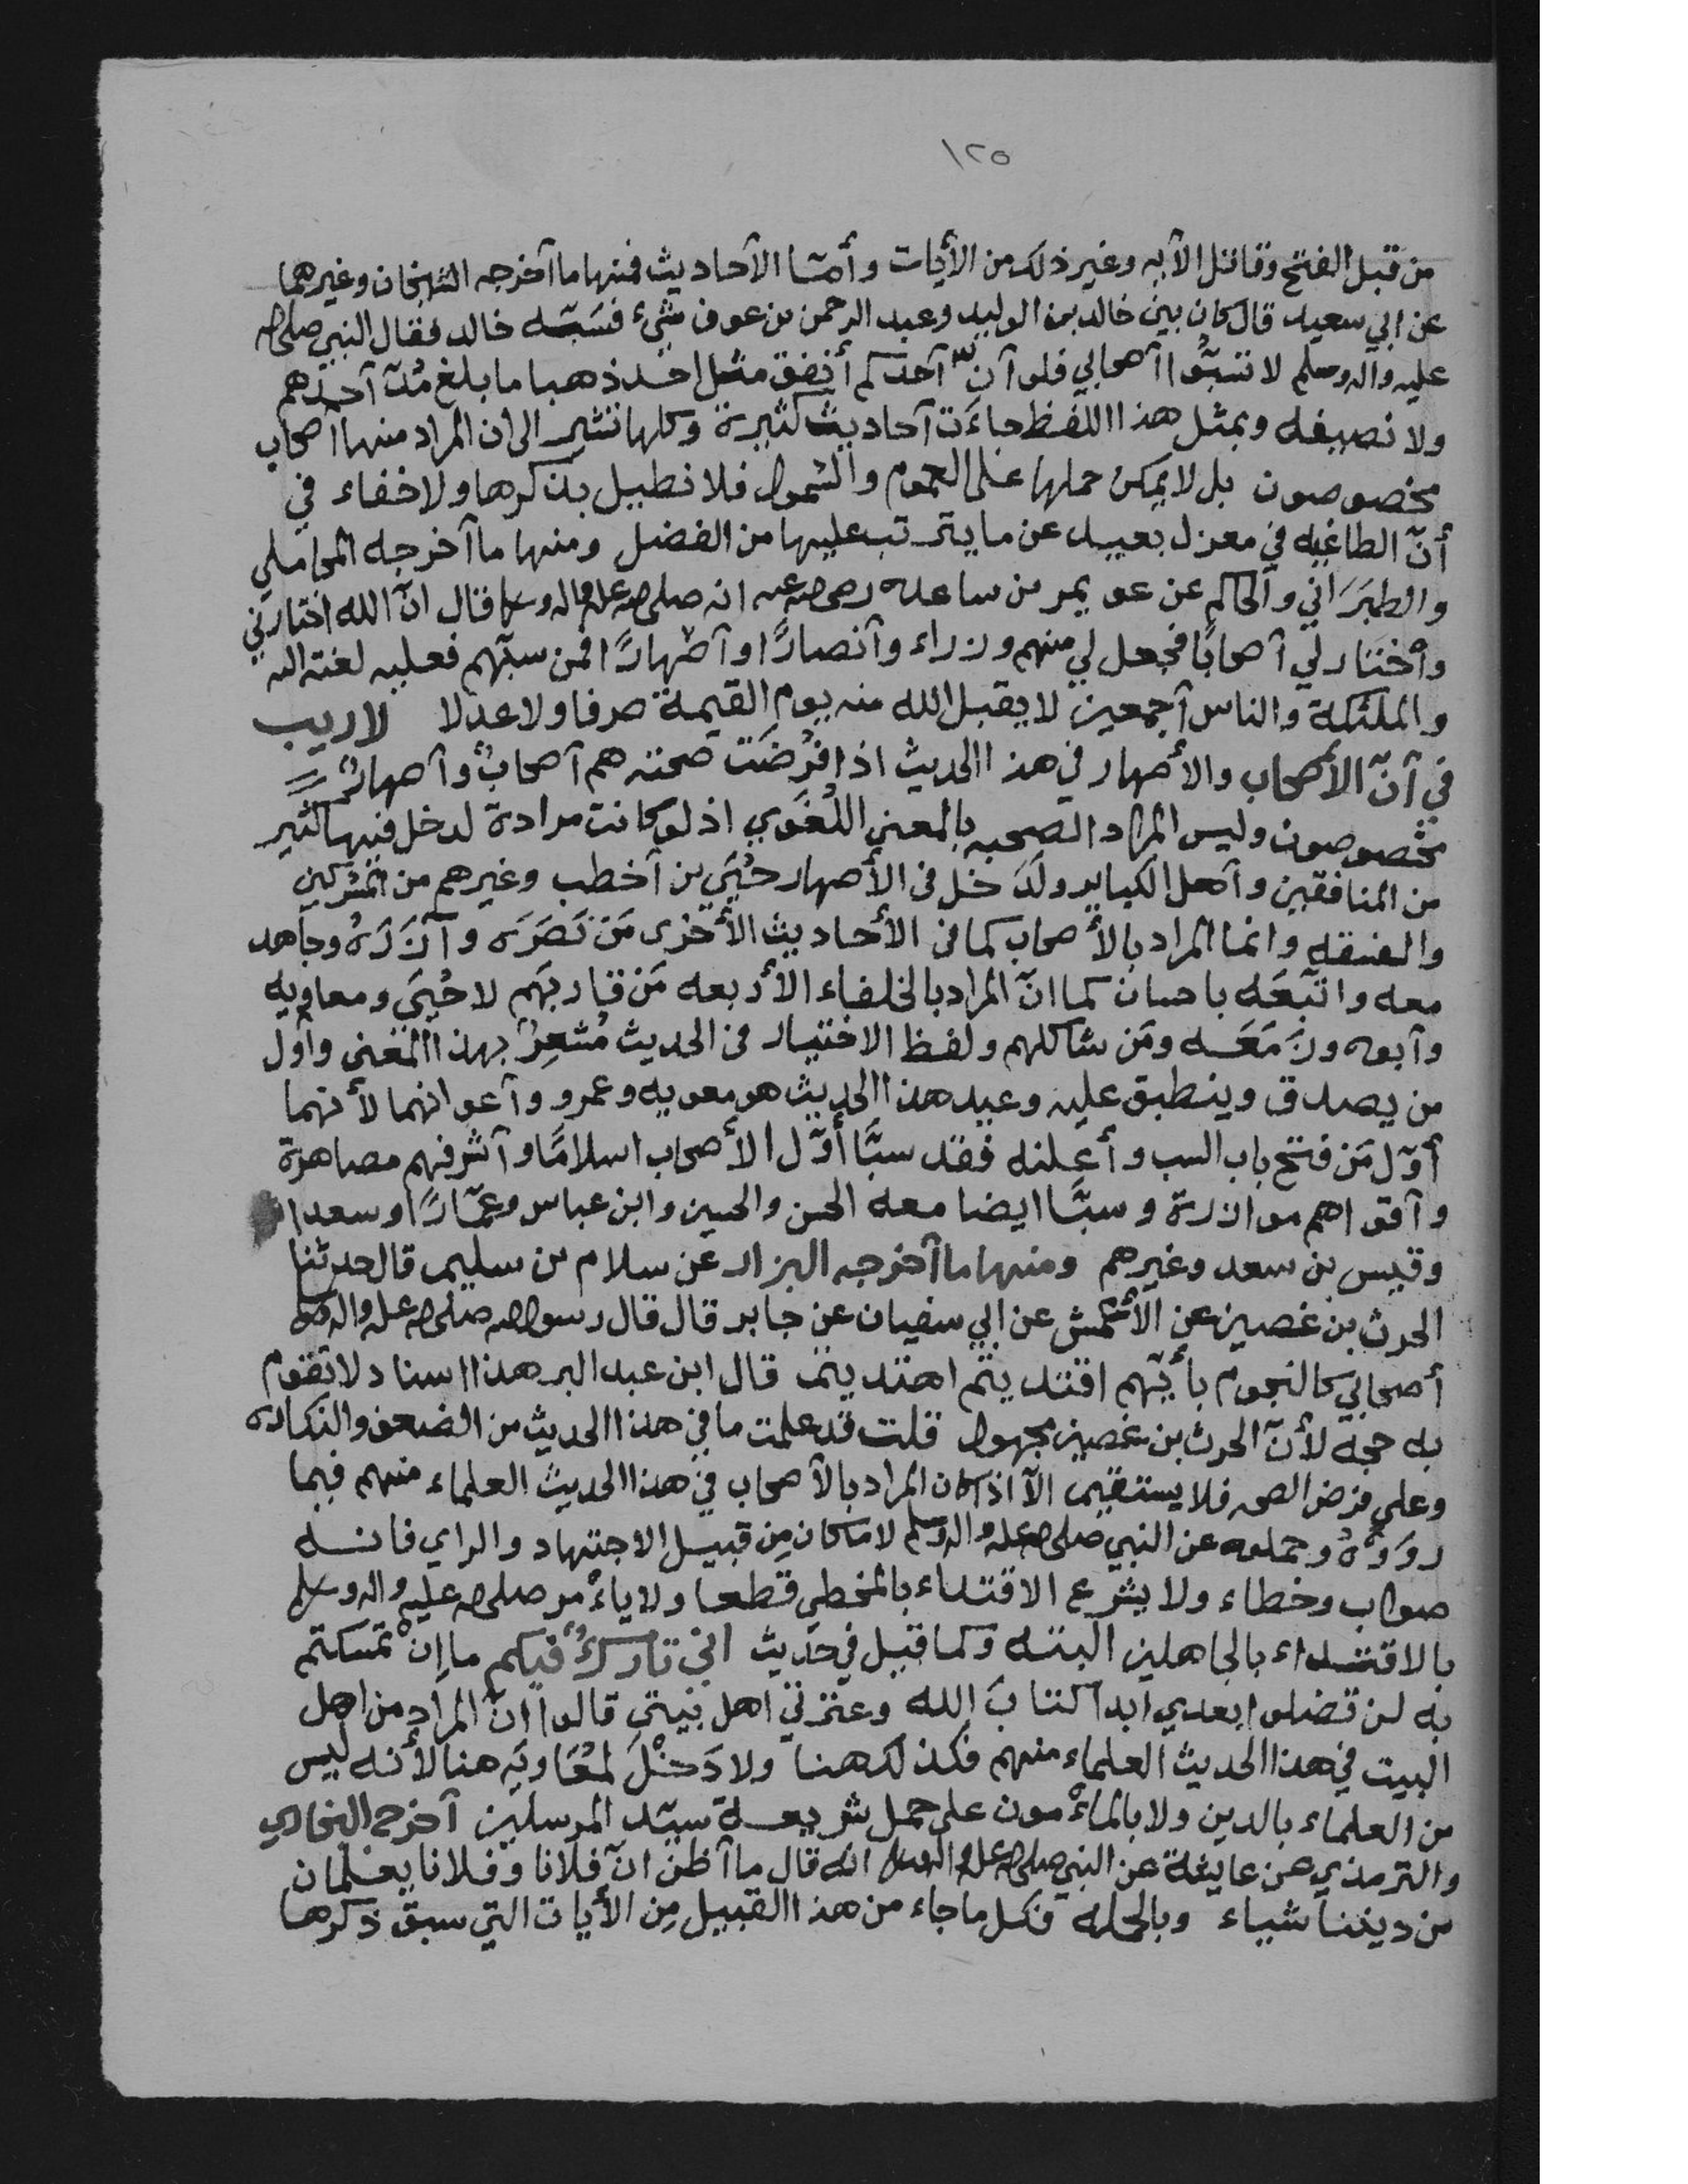 ١٢٥
من قبل الفتح وقاتل الآيه وغير ذلك من الأيات وأمّا الآحاديث فمنها ما آخرجه الشيخان وغيرهما
عن ابي سعيد قال كان بين خالد بن الوليد وعبد الرحمن بن عوف شيء فسَبّه خالد فقال النبي صلى الله
عليه واله وسلم لا تسبّوا آصحابي فلو آنّ آحدكم أنفق مثل احد ذهبا ما بلغ مُدّ آحدهم
ولا نصيفه وبمثل هذا اللفظ جاءَت آحاديث كثيرة وكلها تشير الى ان المراد منها آصحاب
مخصوصون بل لا يمكن حملها على العموم والشمول فلا نطيل بذكرها ولا خفاء في
أنّ الطاغيه في معزل بعيد عن ما يترتب عليها من الفضل ومنها ما آخرجه المحاملي
والطبَرَاني والحاكم عن عويمر بن ساعده رضي الله عنه انه صلى الله عليه واله وسلم قال انّ الله اختارني
وآختار لي آصحابًا فجعل لي منهم وزراء وآنصارًا وآصهارًا فمن سبّهم فعليه لعنة الله
والملئكة والناس آجمعين لا يقبل الله منه يوم القيمة صرفا ولا عدلا لا ريب
في آنّ الأصحاب والأصهار في هذا الحديث اذا فُرضَت صحته هم آصحابٌ وآصهارٌ
مخصوصون وليس المراد الصحبه بالمعنى اللغَوي اذ لو كانت مرادة لدخل فيها كثير
من المنافقين وآهل الكباير ولَدَخل في الأصهار حُيَي بن آخطب وغيرهم من المشركين
والفسقه وانما المراد بالأصحاب كما في الأحاديث الأخرى مَن نَصَرَه وآزَرَهُ وجاهد
معه واتّبعَه باحسان كما انّ المراد بالخلفاء الأربعه مَن قاربهَم لا حُيَي ومعاويه
وآبوه ومَن مَعَه ومَن شاكلهم ولفظ الاختيار في الحديث مُشعِرٌ بهذا المعنى وآول
من يصدق وينطبق عليه وعيد هذا الحديث هو معويه وعمرو وآعوانهما لأنهما
أوّل مَن فتح باب السب وأعلنه فقد سبَّا أوّل الأصحاب اسلامًا وآشرفهم مصاهرة
وآقواهم موازرة وسبَّا ايضا معه الحسن والحسين وابن عباس وعمّارًا وسعدا
وقيس بن سعد وغيرهم ومنها ما آخرجه البزار عن سلام بن سليم قال حدثنا
الحرث بن غصين عن الأعمش عن ابي سفيان عن جابر قال قال رسول الله صلى الله عليه واله وسلم
أصحابي كالنجوم بأيّهم اقتديتم اهتديتم قال ابن عبد البر هذا اسناد لا تقوم
به حجه لأنّ الحرث بن غصين مجهول قلت قد علمت ما في هذا الحديث من الضعف والنكاره
وعلى فرض الصحه فلا يستقيم الّا اذا كان المراد بالآصحاب في هذا الحديث العلماء منهم فيما
روَوْهُ وحملوه عن النبي صلى الله عليه واله وسلم لا ما كان مِن قبيل الاجتهاد والراي فانه
صواب وخطاء ولا يشرع الاقتداء بالمخطي قطعا ولا ياءْمر صلى الله عليه واله وسلم
بالاقتداء بالجاهلين البته وكما قيل في حديث اني تاركٌ فيكم ما إنْ تمسكتم
به لن تضلوا بعدي ابدا كتابَ الله وعترتي اهل بيتي قالوا انّ المراد من اهل
البيت في هذا الحديث العلماء منهم فكذلك هنا ولا دَخْلَ لمُعَاويَه هنا لأنه ليس
من العلماء بالدين ولا بالماءْمون على حمل شريعة سيّد المرسلين آخرج البخاري
والترمذي عن عايشة عن النبي صلى الله عليه واله وسلم انه قال ما آظن انّ فلانا وفلانا يعلمان
من ديننا شياء وبالجمله فكل ما جاء من هذا القبيل مِن الأيات التي سبق ذكرها